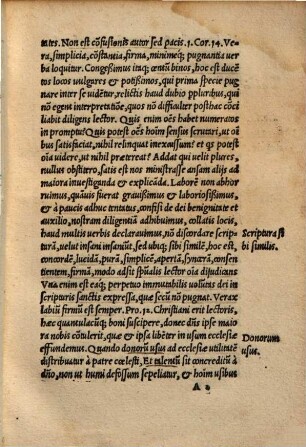 ntes. Non est cõfusionis autor sed pacis. 1. Cor. 14. Ve-
ra, simplicia, cõstantia, firma, minimeq; pugnantia ver
ba loquitur. Congeßimus itaq; centũ binos, hoc est ducẽ
tos locos vulgares & potißimos, qui prima specie pug
nare inter se vidẽtur, relictis haud dubio pluribus, qui
nõ egent interpretatiõe, quos nõ difficulter posthac cõci
liabit diligens lector. Quis enim oẽs habet numeratos
in promptu? Quis potest oẽs hoĩm sensus scrutari, ut oĩ
bus satisfaciat, nihil relinquat inexaustum? et qs potest
oĩa videre, ut nihil prætereat? Addat qui velit plures,
nullus obstitero, satis est nos ministrasse ansam alijs ad
maiora inuestiganda & explicãda. Laborẽ non abhor
ruimus, quãuis fuerat grauißimus & laboriosißimus,
& à paucis adhuc tentatus, confisi de dei benignitate et
auxilio, nostram diligentiã adhibuimus, collatis locis,
haud multis verbis declarauimus, nõ discordare scriptu
rã, velut insani insaniũt, sed ubiq; sibi similẽ, hoc est,
concordẽ, lucidã, purã, simplicẽ, apertã, synatrã, consen
tientem, firmã, modo adsit spũalis lector oĩa dijudicans
Vna enim est eaq; perpetuo immutabilis volũtas dei in
scripturis sanctis expressa, quæ secũ nõ pugnat. Verax
labiũ firmũ est semper. Pro. 12. Christiani erit lectoris,
hæc quantulacũq; boni suscipere, donec dñs ipse maio
ra nobis cõtulerit, quæ & ipsa libẽter in usum ecclesiæ
effundemus. Quando donorũ usus ad ecclesiæ utilitatẽ
distribuatur à patre cœlesti, Et talentũ sit concreditũ à
dño, non ut humi defossum sepeliatur, & hoĩm usibus
Scriptura si
bi similis.
Donorum
usus.
A